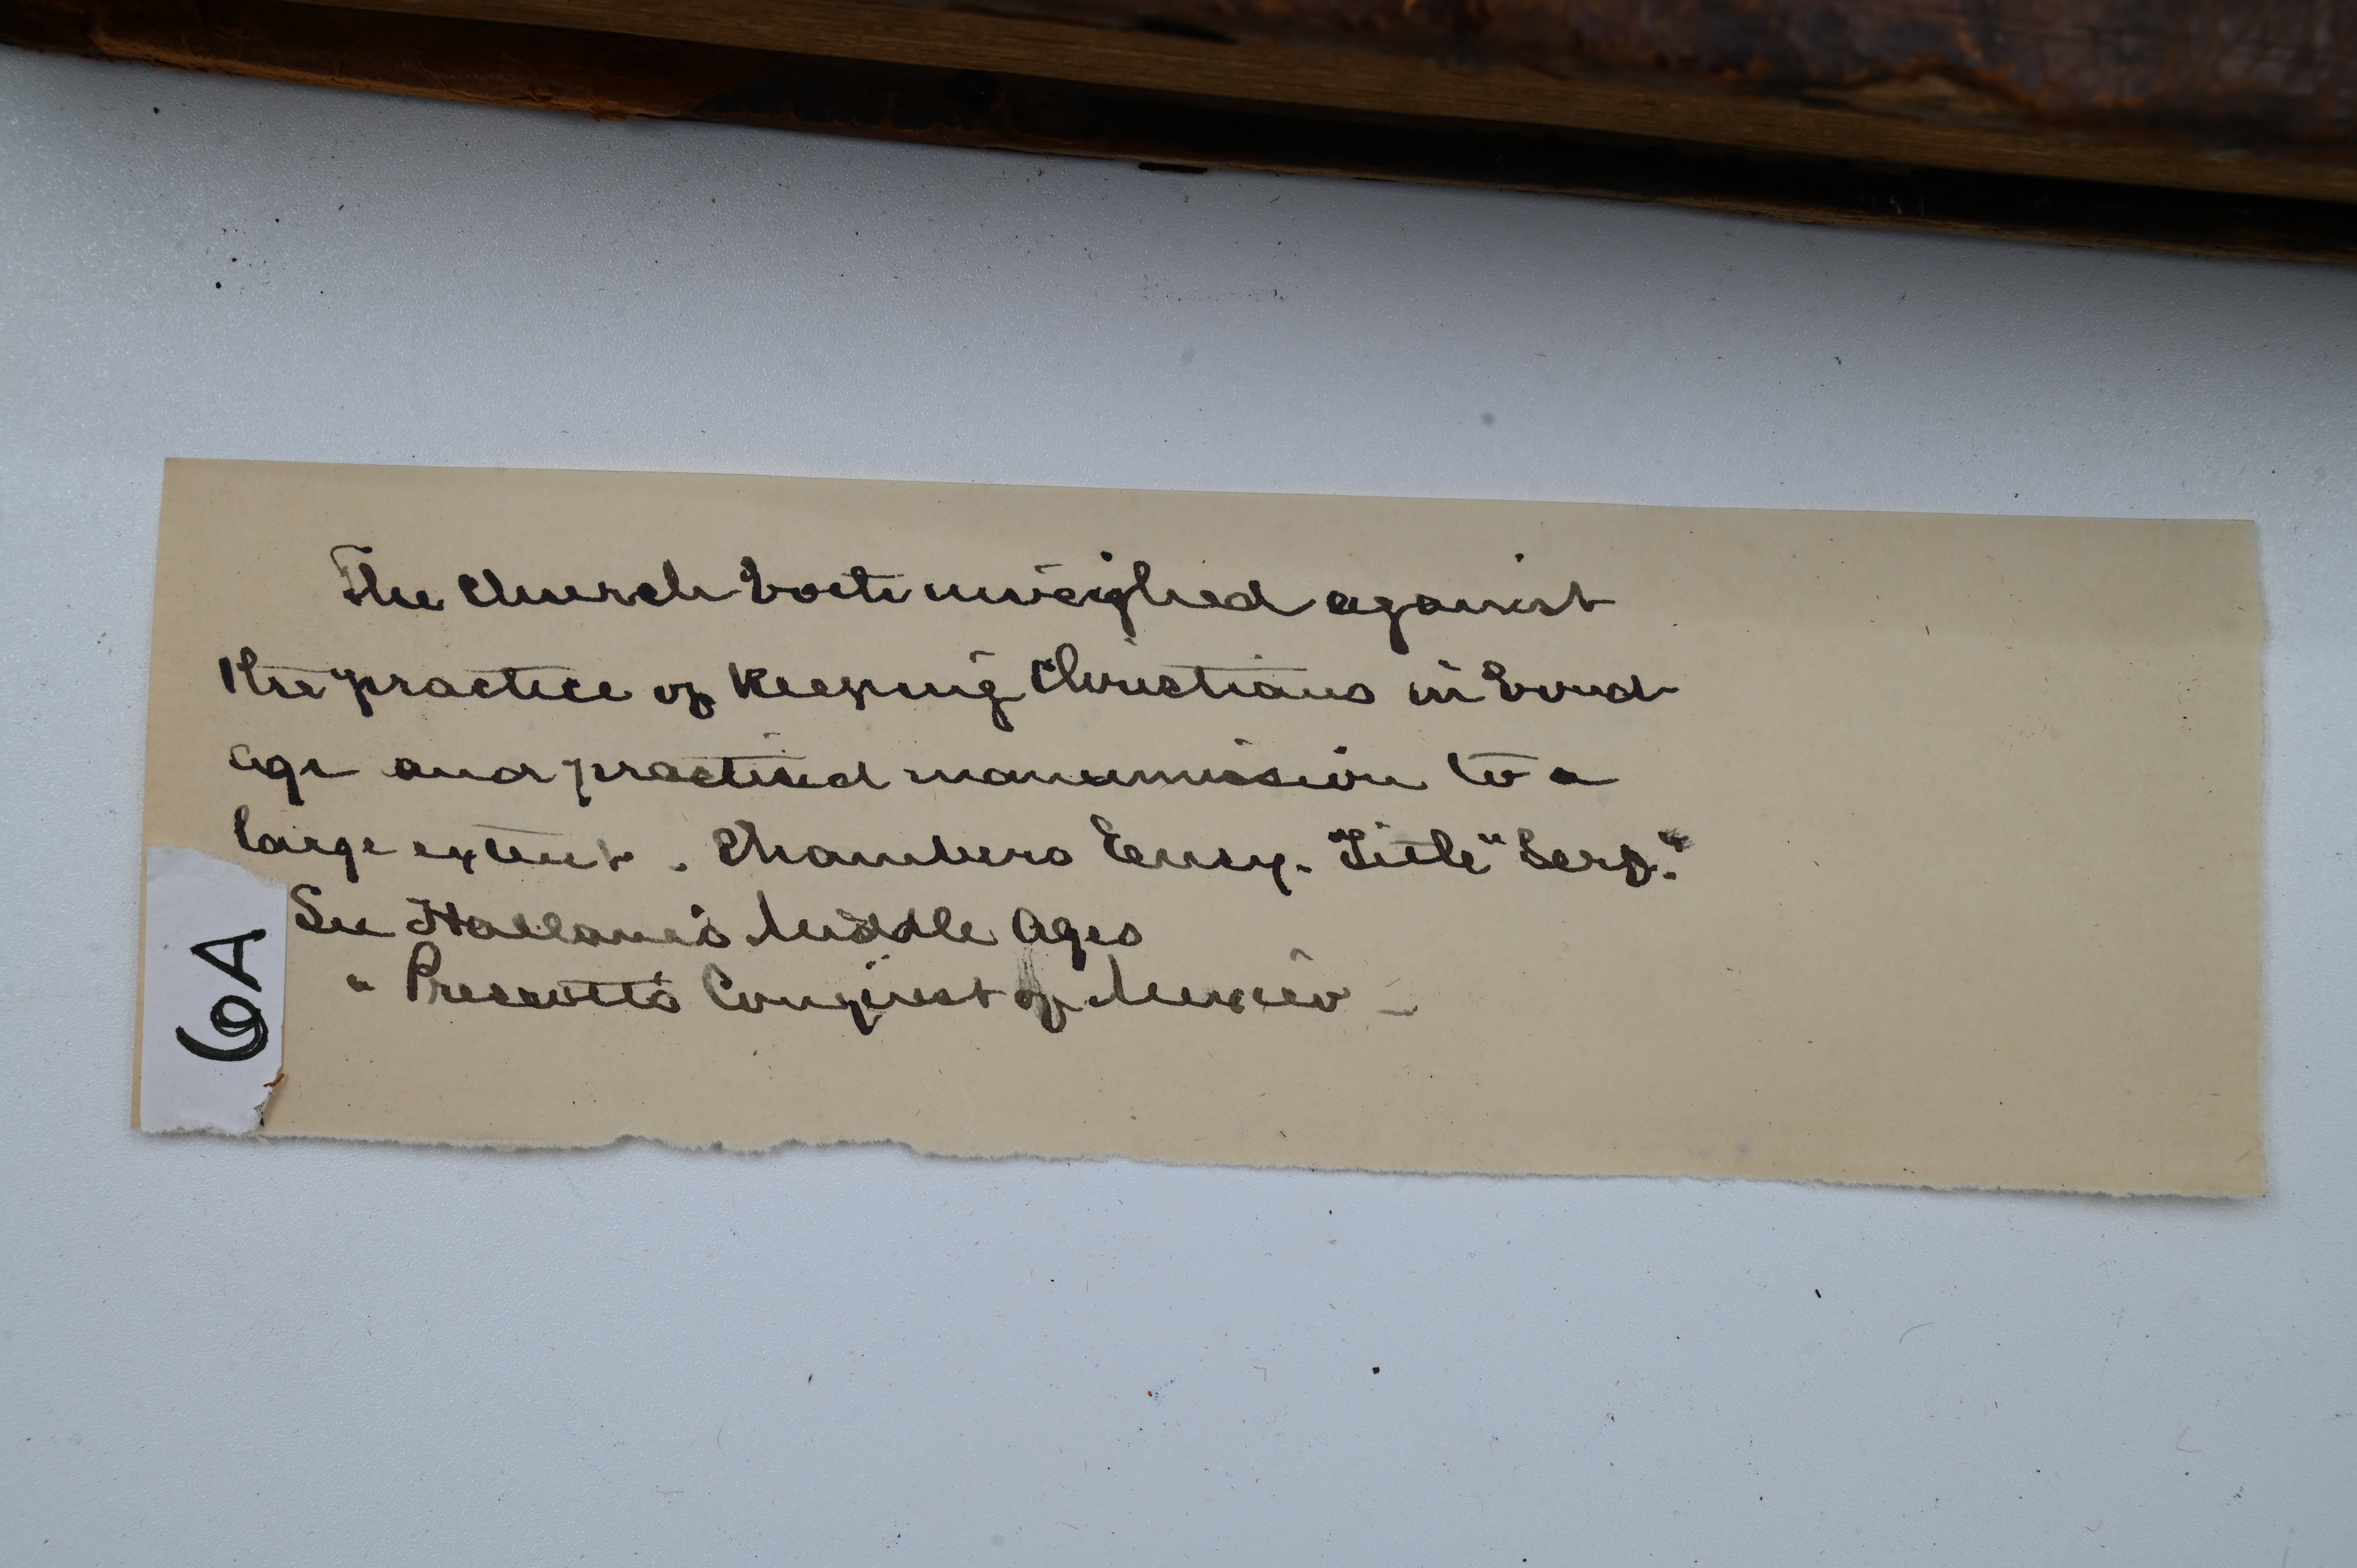 The Church both inveighed against
the practice of keeping Christians in bond
age and practised manumission to a
large extent. Chambers Ency. Title "Serf."
See Hallam's Middle Ages
" Prescott's Conquest of Mexico -
6A